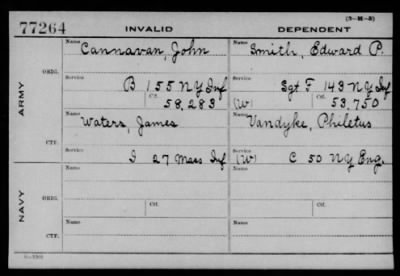 (3-M-3)
77264 INVALID DEPENDENT
ARMY
ORIG.
Name Cannavan, John Name Smith, Edward P.
Service B 155 NY Inf Service Sgt F 143 NY Inf
Ctf. 58,283 (W) Ctf. 53,750
CTF.
Name Waters, James Name Vandyke, Philetus
Service I 27 Mass Inf Service (W) C 50 NY Eng.
NAVY
ORIG.
Name Name
Service Ctf. Service Ctf.
CTF.
Name Name